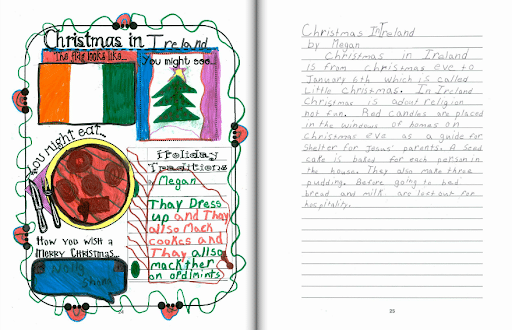 Christmas in Ireland
The flag looks like...
You might see...
You might eat...
Holiday
Traditions
by Megan
Thay Dress
up and Thay
also Mack
cookes and
Thay allso
mack ther
on opdimints
How you wish a
Merry Christmas...
Nollig
Shona
Christmas In Ireland
by Megan
Christmas in Ireland
is from christmas eve to
January 6th which is called
Little Christmas. In Ireland
Christmas is adout religion
not fun. Red candles are placed
in the windows of homes on
Christmas eve as a guide for
shelter for Jesus' parents. A seed
cake is baked for each person in
the house. They also make three
pudding. Before going to bed
bread and milk are left out for
hospitality.